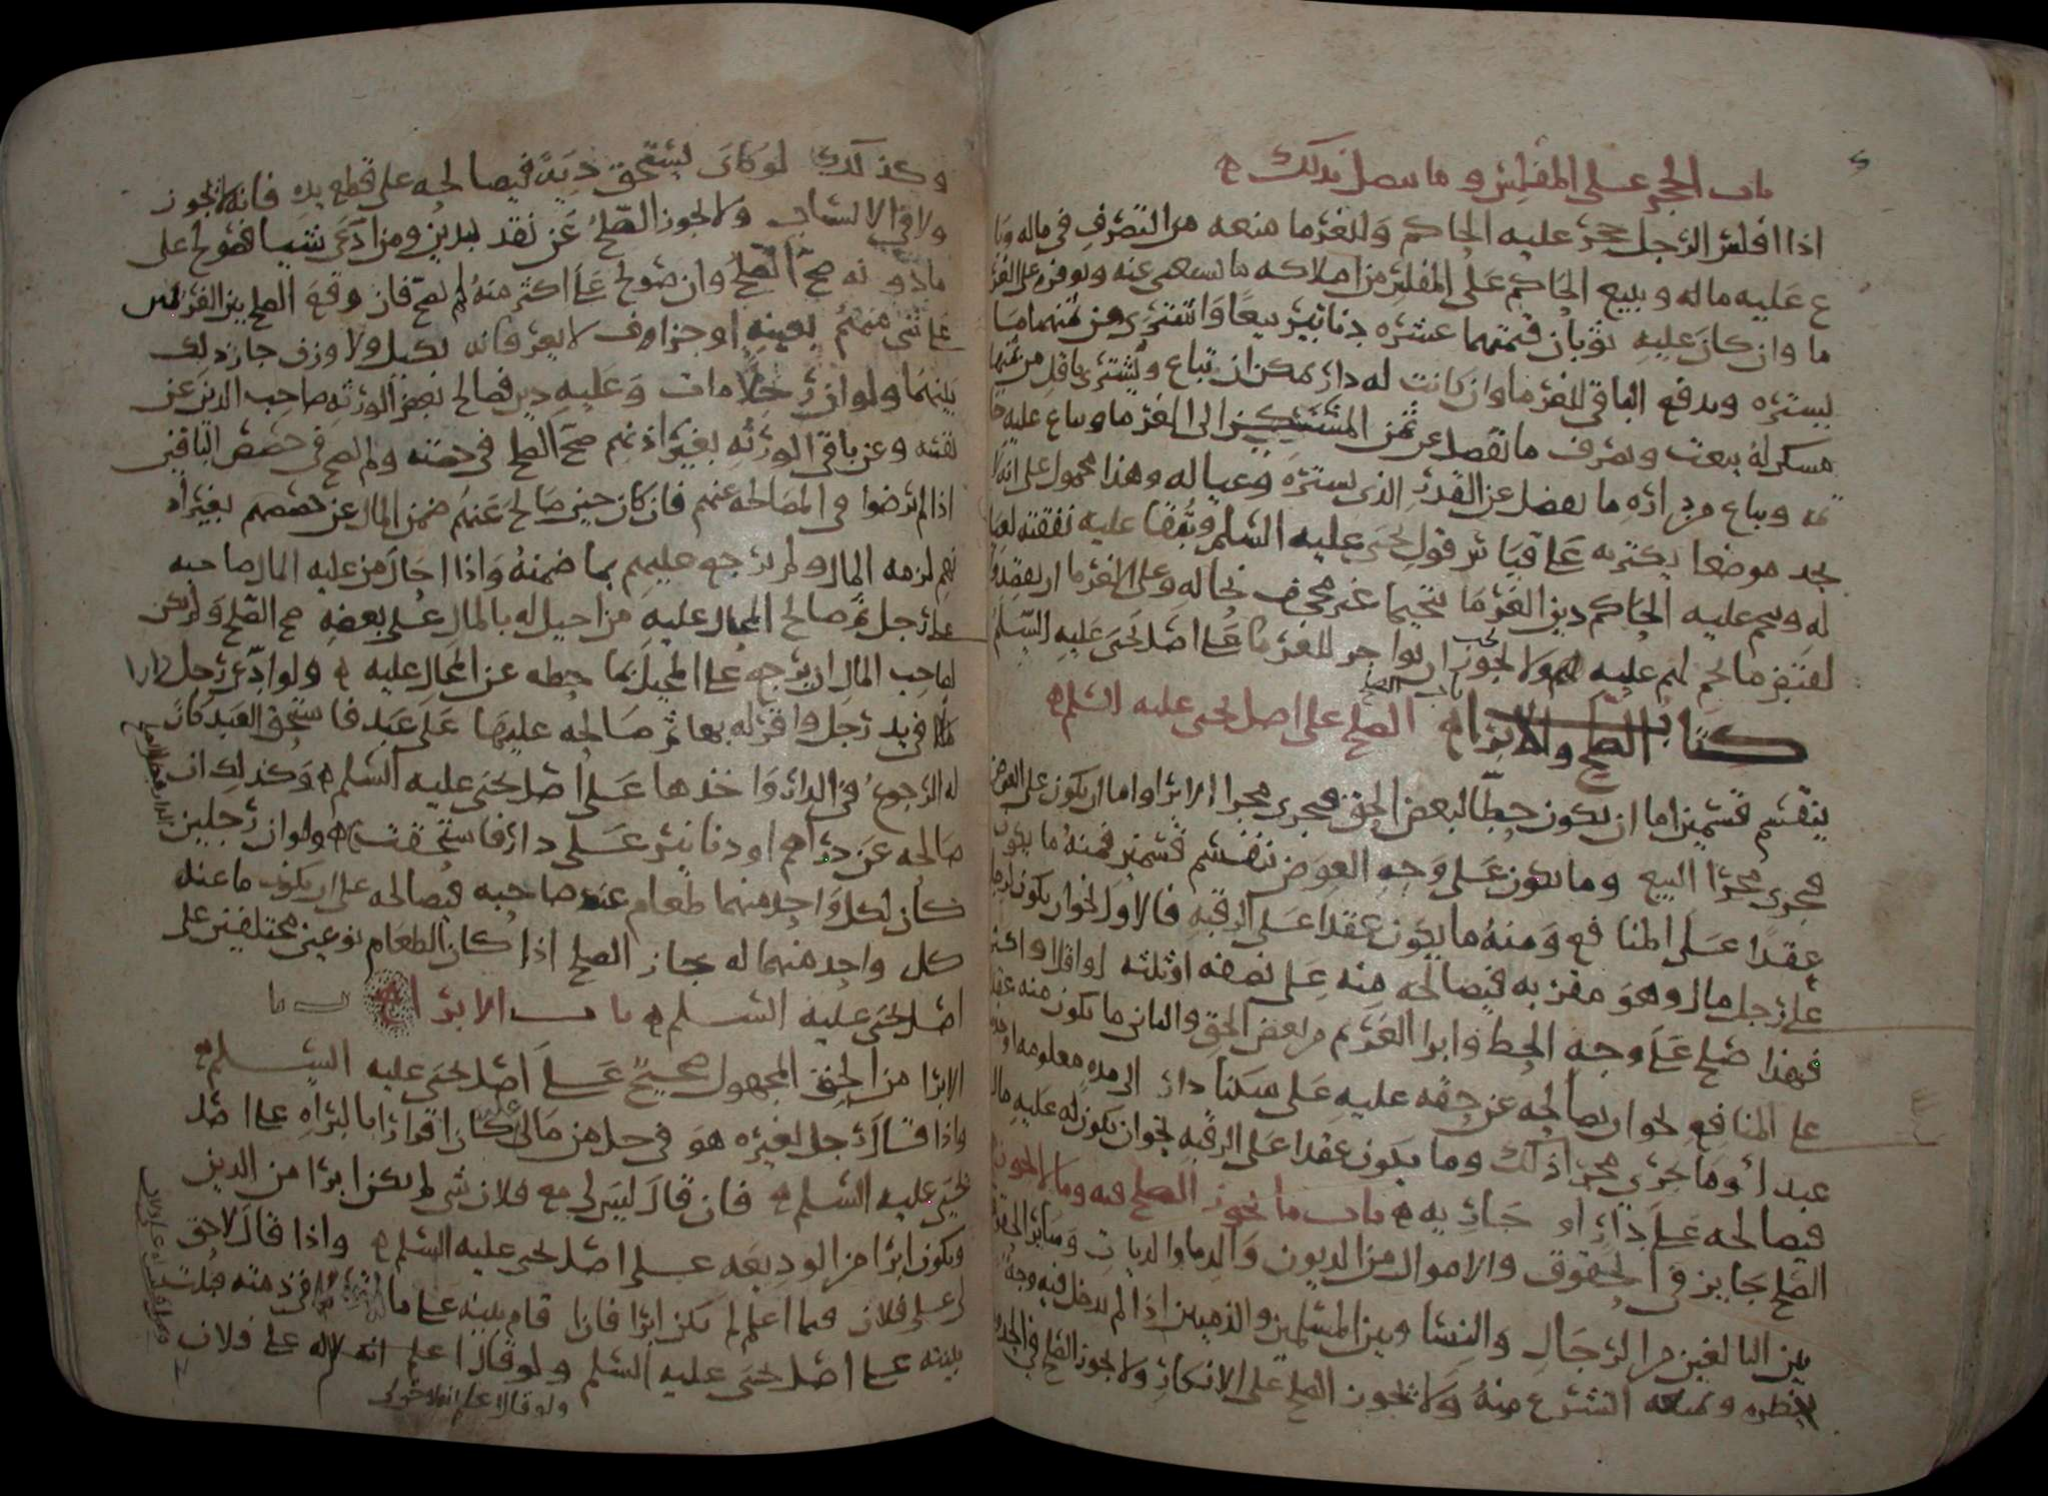 باب الحجر على المفلس وما يتصل بذلك
اذا افلس الرجل حجر عليه الحاكم وللغرما منعه من التصرف في ماله
عليه ماله ويبيع الحاكم على المفلس من املاكه ما يستغنى عنه ويوفره على
ما وان كان عليه ثوبان قيمتهما عشره دنانير بيعا واشترى من ثمنهما ما
يستره ويدفع الباقي للغرما وان كانت له دار يمكن ان تباع ويشترى باقل من ثمنها
مسكن له بيعت وصرف ما يفضل عن ثمن المسكن الى الغرما ويباع عليه
ويباع من داره ما يفضل عن القدر الذي يستره وعياله وهذا محمول على انه
يجد موضعا يكتريه على قياس قول يحيى عليه السلم ونفقا عليه نفقته
له وينجم عليه الحاكم دين الغرما تنجيما غير مجحف بحاله وعلى الغرما ان
ما لحم لهم عليه ولا يجوز ان يواجر للغرما على اصل يحيى عليه السلم
باب الصلح
كتاب الصلح والابرا الصلح على اصل يحيى عليه السلم
ينقسم قسمين اما ان يكون حطا لبعض الحق فيجري مجرا الابرا واما ان يكون على العوض
فيجري مجرا البيع وما يكون على وجه العوض ينقسم قسمين فمنه ما يكون
عقدا على المنافع ومنه ما يكون عقدا على الرقبه فالاول نحو ان يكون لرجل
على رجل مال وهو مقر به فيصالحه منه على نصفه او ثلثه او اقل او اكثر
فهذا صلح على وجه الحط وابرا الغريم من بعض الحق والثاني ما يكون منه عقدا
على المنافع نحو ان يصالحه عن حقه عليه على سكنا دار الى مده معلومه او
عبد او ما جرى مجرا ذلك وما يكون عقدا على الرقبه نحو ان يكون له عليه مال
فيصالحه على دار او جاريه باب ما يجوز الصلح فيه وما لا يجوز
الصلح جايز في الحقوق والاموال من الديون والدما والديات وساير الحقوق
بين البالغين من الرجال والنسا وبين المسلمين والذميين اذا لم يدخل فيه وجه
يحظره ويمنعه الشرع منه ولا يجوز الصلح على الانكار ولا يجوز الصلح في الحدود
وكذلك لو كان يستحق ديه فيصالحه على قطع يده فانه لا يجوز
ولا في الانساب ولا يجوز الصلح عن نقد بدين ومن ادعى شيا فصولح على
ما دونه صح الصلح وان صولح على اكثر منه لم يصح فان وقع الصلح بين الغريمين
على شي منهم بعينه او جزاف لا يعرفانه بكيل ولا وزن جاز ذلك
بينهما ولو ان رجلا مات وعليه دين فصالح بعض الورثه صاحب الدين عن
نفسه وعن باقي الورثه بغير اذنهم صح الصلح في حصته ولم يصح في حصص الباقين
اذا لم يرضوا في المصالحه عنهم فان كان حين صالح عنهم ضمن المال عن حصصهم بغير
لزمه المال ولم يرجع عليهم بما ضمنه واذا احال من عليه المال صاحبه
على رجل ثم صالح المحال عليه من احيل له بالمال على بعضه صح الصلح ولم يكن
لصاحب المال ان يرجع على المحيل بما حطه عن المحال عليه ولو ادعى رجل دارا
في يد رجل واقر له بها ثم صالحه عليها على عبد فاستحق العبد كان
له الرجوع في الدار واخذها على اصل يحيى عليه السلم وكذلك ان
صالحه عن دراهم او دنانير على دار فاستحقت ولو ان رجلين
كان لكل واحد منهما طعام عند صاحبه فيصالحه على ان يكون ما عند
كل واحد منهما له جاز الصلح اذا كان الطعام نوعين مختلفين على
اصل يحيى عليه السلم باب الابرا
الابرا من الحق المجهول صحيح على اصل يحيى عليه السلم
واذا قال رجل لغيره هو في حل من مالي عليه كان اقرارا بالبراه على اصل
يحيى عليه السلم فان قال ليس لي مع فلان شي لم يكن ابرا من الدين
ويكون ابرا من الوديعه على اصل يحيى عليه السلم واذا قال لا حق
لي على فلان فيما اعلم لم يكن ابرا فان اقام بينه على ما في ذمته قبلت
بينته على اصل يحيى عليه السلم ولو قال اعلم انه لا له على فلان
ولو قال اعلم انه لا حق لي